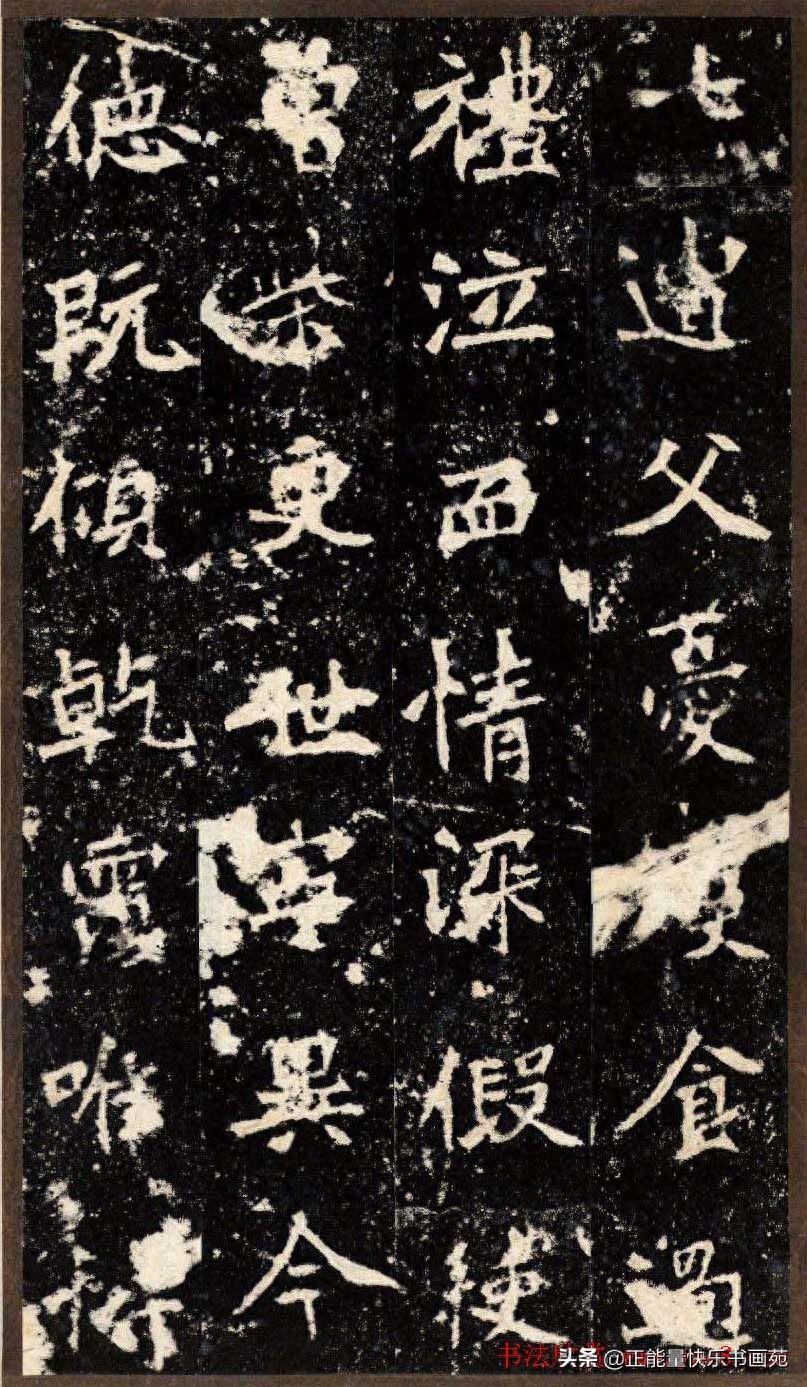 七遭父憂食過
禮泣血情深假使
曾柴更世寧異今
德既傾乾覆唯恃
书法
头条 @正能量快乐书画苑